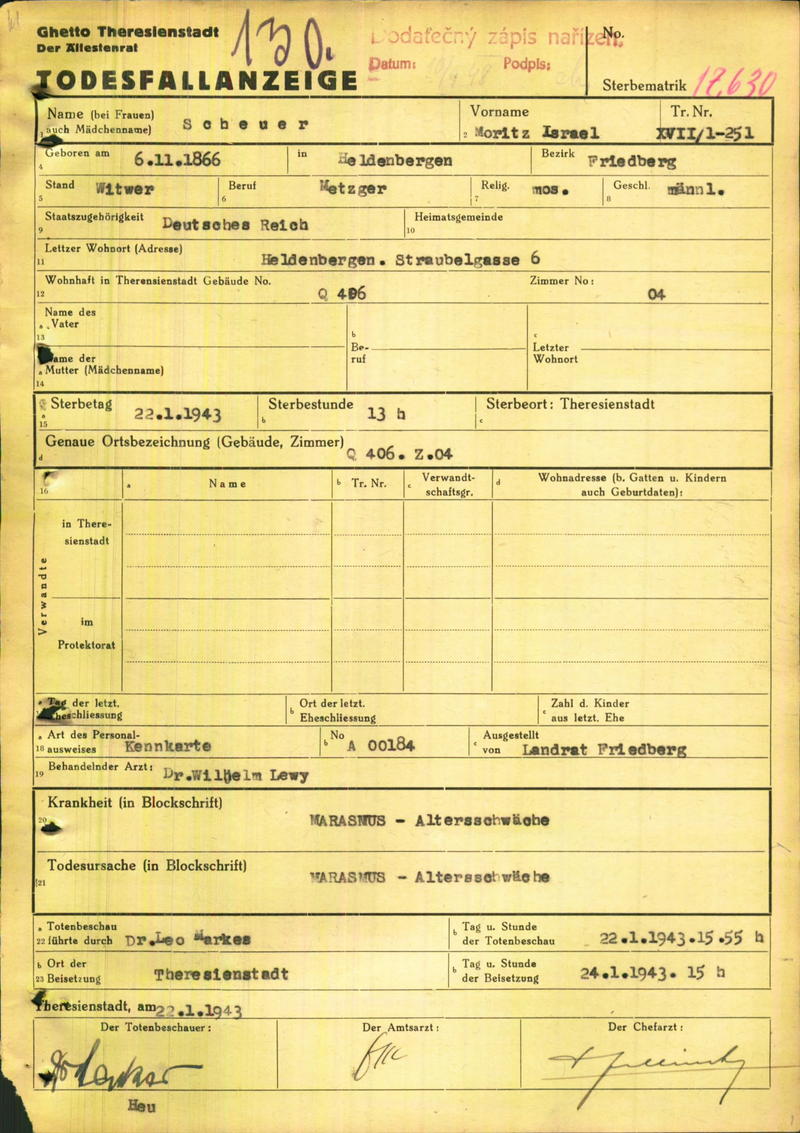 Ghetto Theresienstadt
Der Ältestenrat
TODESFALLANZEIGE
130.
Dodatečný zápis nařízen.
Datum: Podpis:
No.
Sterbematrik 17.630
Name (bei Frauen) auch Mädchenname) Scheuer
2 Vorname Moritz Israel
Tr. Nr. XVII/1-251
4 Geboren am 6.11.1866 in Heldenbergen Bezirk Friedberg
5 Stand Witwer 6 Beruf Metzger 7 Relig. mos. 8 Geschl. männl.
9 Staatszugehörigkeit Deutsches Reich 10 Heimatsgemeinde
11 Lettzer Wohnort (Adresse) Heldenbergen. Straubelgasse 6
12 Wohnhaft in Therensienstadt Gebäude No. Q 406 Zimmer No: 04
13 a Name des Vater
b Beruf
c Letzter Wohnort
14 a Name der Mutter (Mädchenname)
15 a Sterbetag 22.1.1943 b Sterbestunde 13 h c Sterbeort: Theresienstadt
d Genaue Ortsbezeichnung (Gebäude, Zimmer) Q 406. Z.04
16 a Name b Tr. Nr. c Verwandt-schaftsgr. d Wohnadresse (b. Gatten u. Kindern auch Geburtdaten):
Verwandte
in There-
sienstadt
im
Protektorat
a Tag der letzt. Eheschliessung b Ort der letzt. Eheschliessung c Zahl d. Kinder aus letzt. Ehe
18 a Art des Personal-ausweises Kennkarte b No A 00184 c Ausgestellt von Landrat Friedberg
19 Behandelnder Arzt: Dr.Wilhelm Lewy
20 Krankheit (in Blockschrift) MARASMUS - Altersschwäche
21 Todesursache (in Blockschrift) MARASMUS - Altersschwäche
22 a Totenbeschau führte durch Dr.Leo Markes b Tag u. Stunde der Totenbeschau 22.1.1943.15.55 h
23 b Ort der Beisetzung Theresienstadt b Tag u. Stunde der Beisetzung 24.1.1943. 15 h
Theresienstadt, am 22.1.1943
Der Totenbeschauer: Der Amtsarzt: Der Chefarzt:
Heu